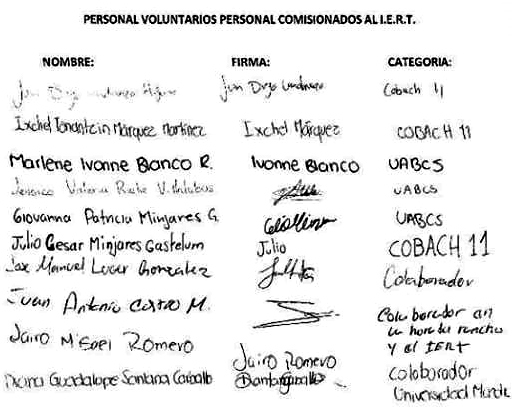 PERSONAL VOLUNTARIOS PERSONAL COMISIONADOS AL I.E.R.T.
NOMBRE: FIRMA: CATEGORIA:
Juan Diego Cobach 11
Ixchel Tonantzin Márquez Martínez Ixchel Márquez COBACH 11
Marlene Ivonne Blanco R. Ivonne Blanco UABCS
Valeria UABCS
Giovanna Patricia Minjares G. UABCS
Julio Cesar Minjares Gastelum Julio COBACH 11
Jose Manuel Gonzalez Colaborador
Juan Antonio Castro M. Colaborador en
rancho
y el IERT
Jairo Misael Romero Jairo Romero colaborador
Diana Guadalupe Santana Carballo Universidad